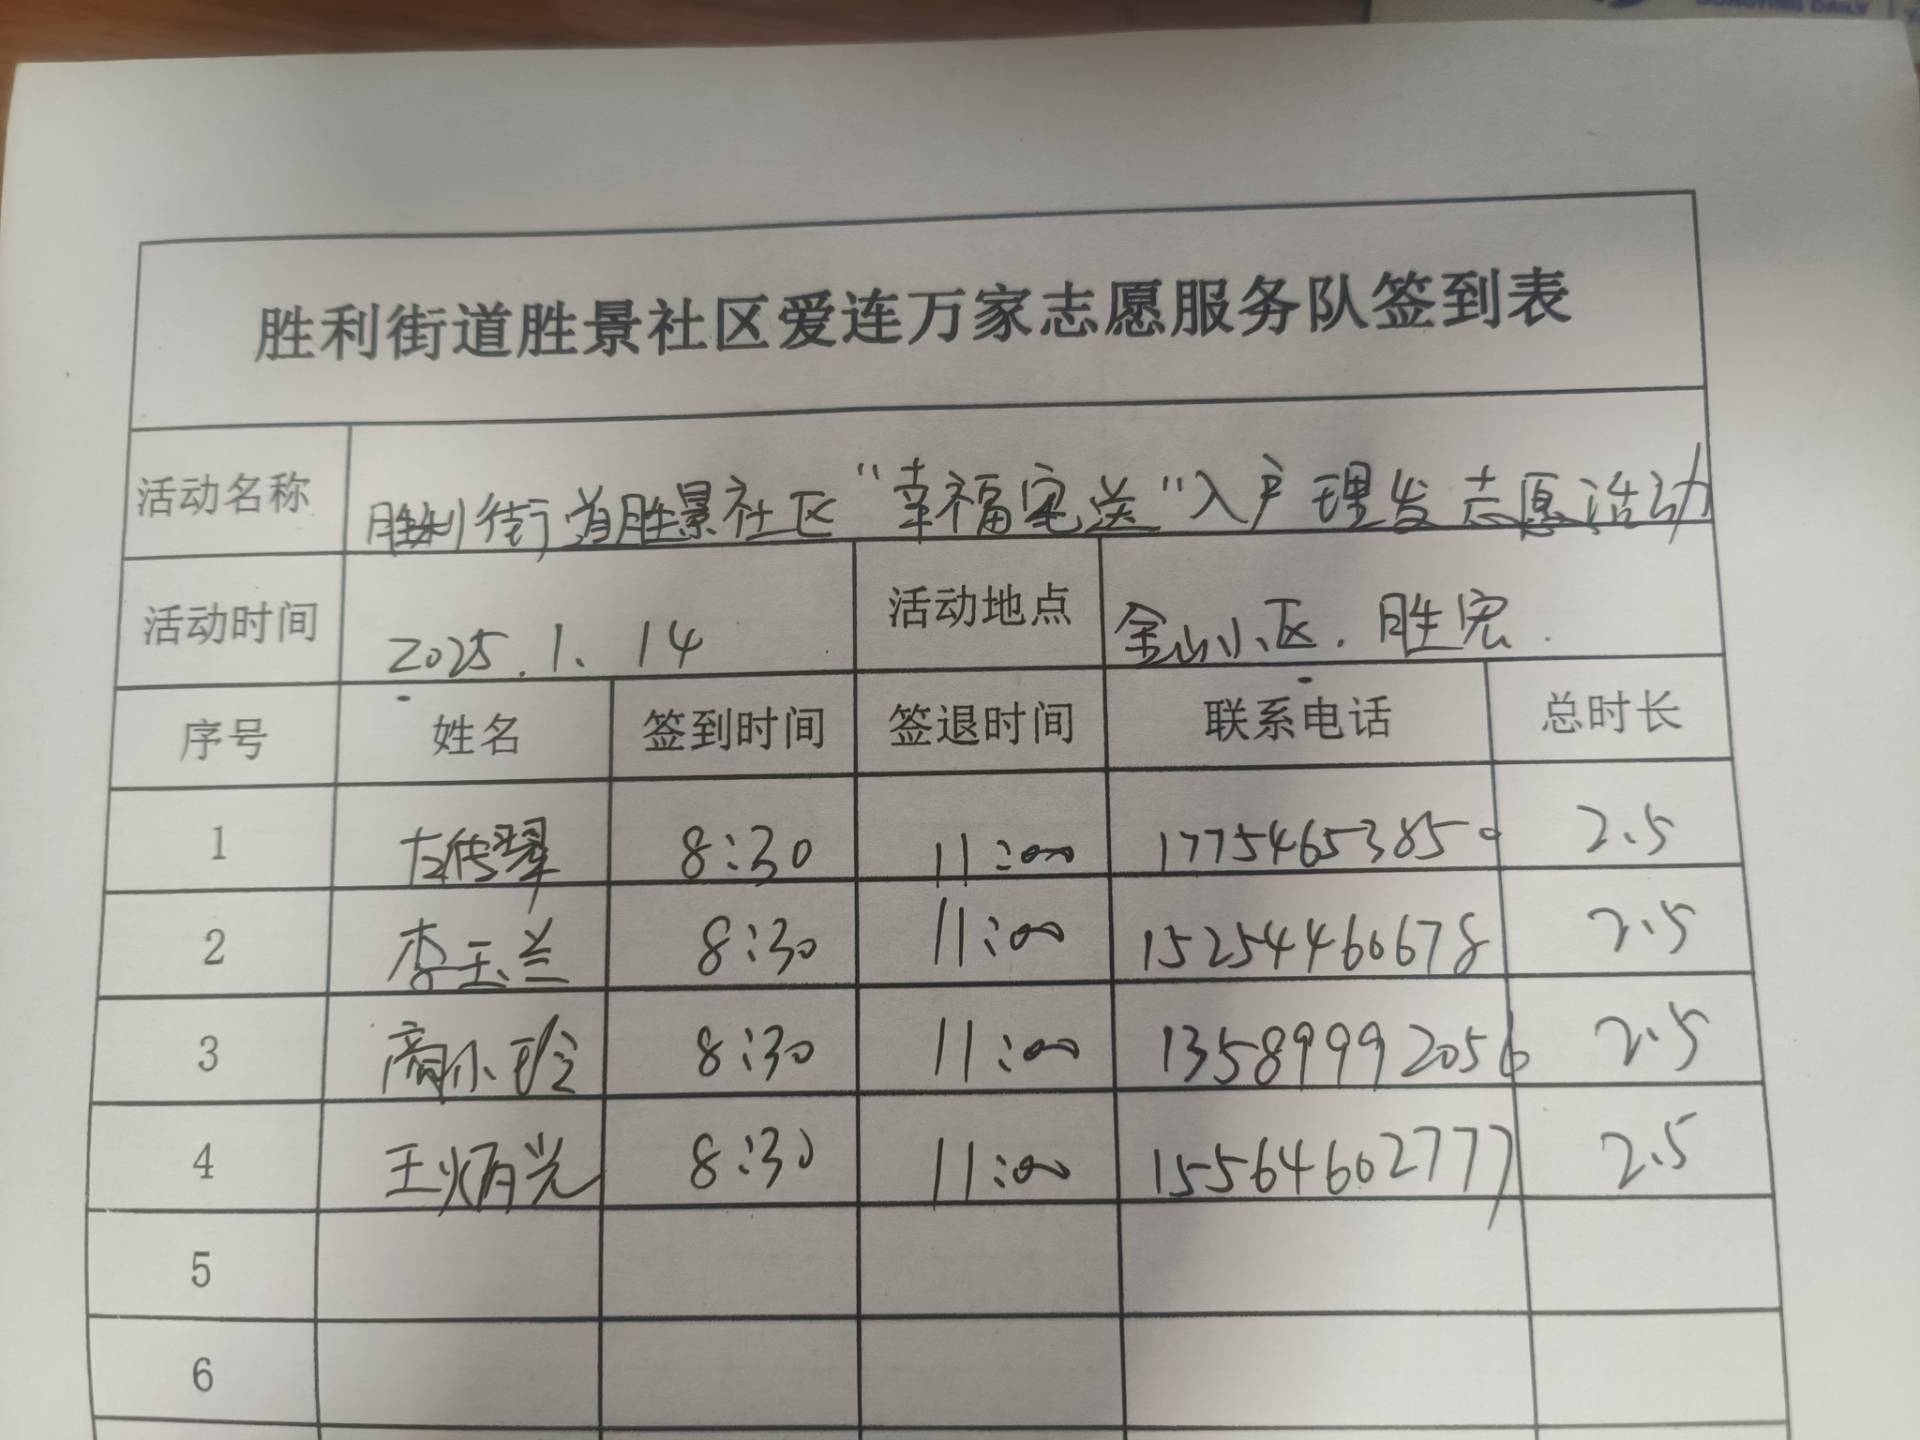 DONGYING DAILY
胜利街道胜景社区爱连万家志愿服务队签到表
活动名称 胜利街道胜景社区“幸福宅送”入户理发志愿活动
活动时间 2025.1.14 活动地点 金山小区.胜宏.
序号 姓名 签到时间 签退时间 联系电话 总时长
1 左传翠 8:30 11:00 17754653850 2.5
2 李玉兰 8:30 11:00 15254460678 2.5
3 商小玲 8:30 11:00 13589992056 2.5
4 王炳光 8:30 11:00 15564602777 2.5
5
6